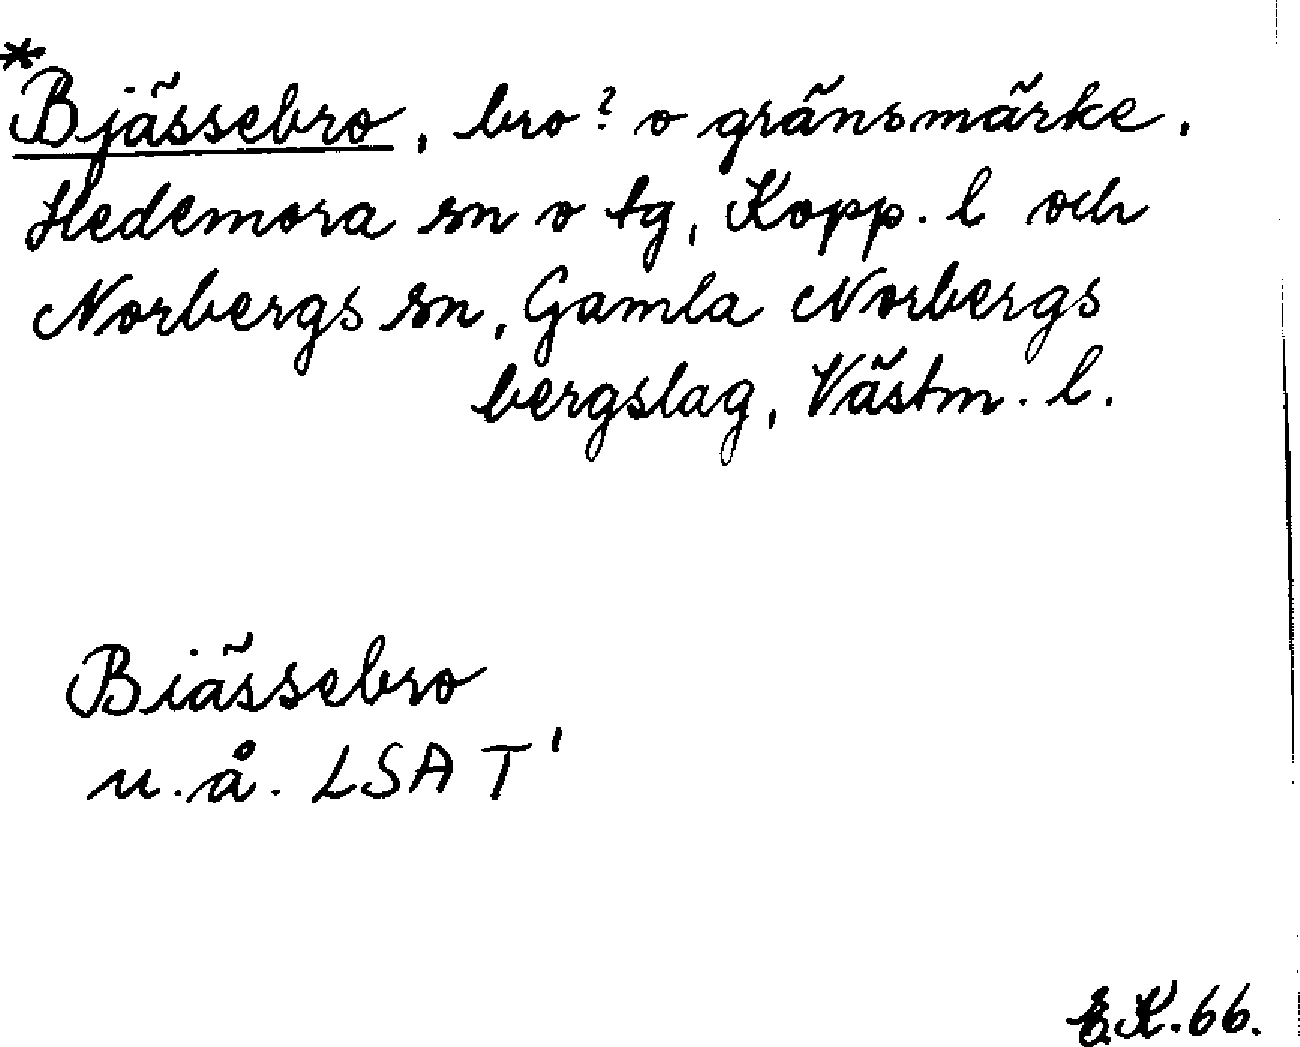 *
Bjässebro, bro? o gränsmärke.
Hedemora sn o tg, Kopp. l och
Norbergs sn, Gamla Norbergs
bergslag, Västm. l.
Biässebro
u.å. LSA T¹
E.K.66.